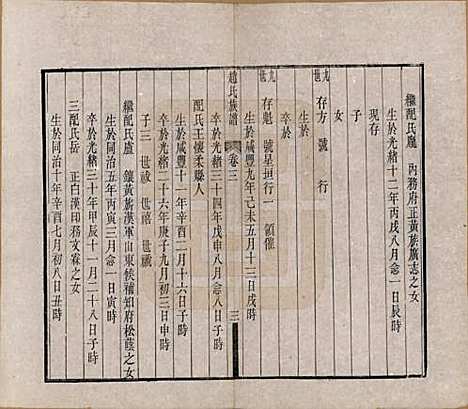 繼配氏盧　內務府正黃旗廣志之女
生於光緒十二年丙戌八月念一日辰時
現存
子
女
九世　存方　號　行
生於
卒於
九世　存魁　號星垣行一　領催
生於咸豐九年己未五月十三日戌時
趙氏族譜　卷三　三
卒於光緒三十四年戊申八月念一日子時
配氏王懷柔縣人
生於咸豐十一年辛酉二月十六日子時
卒於光緒二十六年庚子九月初三日申時
子三　世祿　世禧　世
繼配氏盧　鑲黃旗漢軍山東候補知府松蔭之女
生於同治五年丙寅三月念一日寅時
卒於光緒三十年甲辰十一月二十八日子時
三配氏岳　正白漢印務文霖之女
生於同治十年辛酉七月初八日丑時